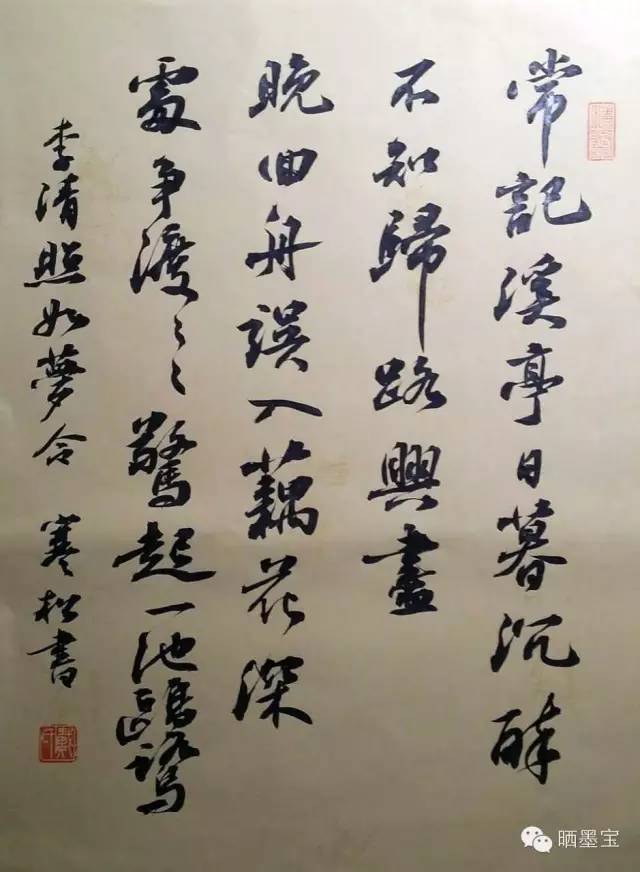 常記溪亭日暮沉醉
不知歸路興盡
晚回舟誤入藕花深
處爭渡々々驚起一池鷗鷺
李清照如夢令 寒松書
晒墨宝